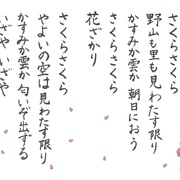 さくらさくら
野山も里も見わたす限り
かすみか雲か 朝日におう
さくらさくら
花ざかり
さくらさくら
やよいの空は見わたす限り
かすみか雲か 匂いぞ出ずる
いざや いざや